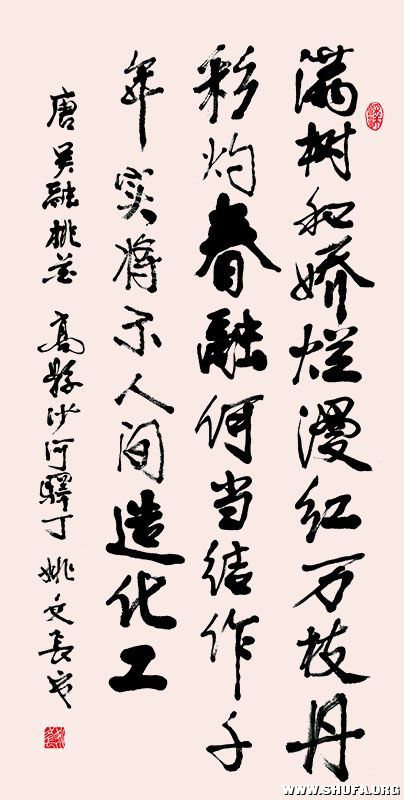 满树和娇烂漫红万枝丹
彩灼春融何当结作千
年实将示人间造化工
唐吴融桃花 高县沙河驿丁 姚文长书
WWW.SHUFA.ORG